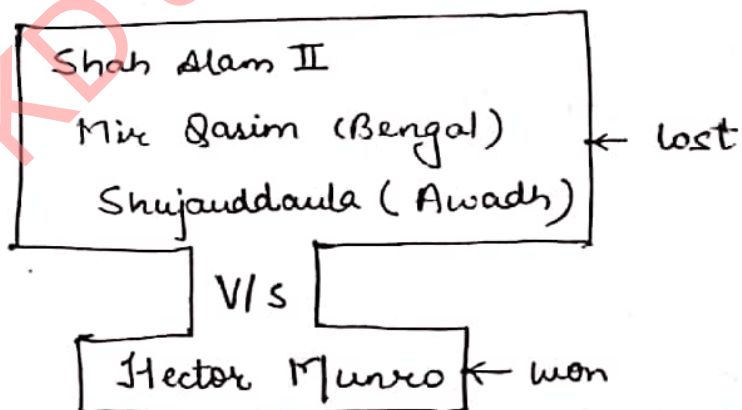 Shah Alam II
Mir Qasim (Bengal)
← lost
Shujauddaula (Awadh)
V/s
Hector Munro ← won